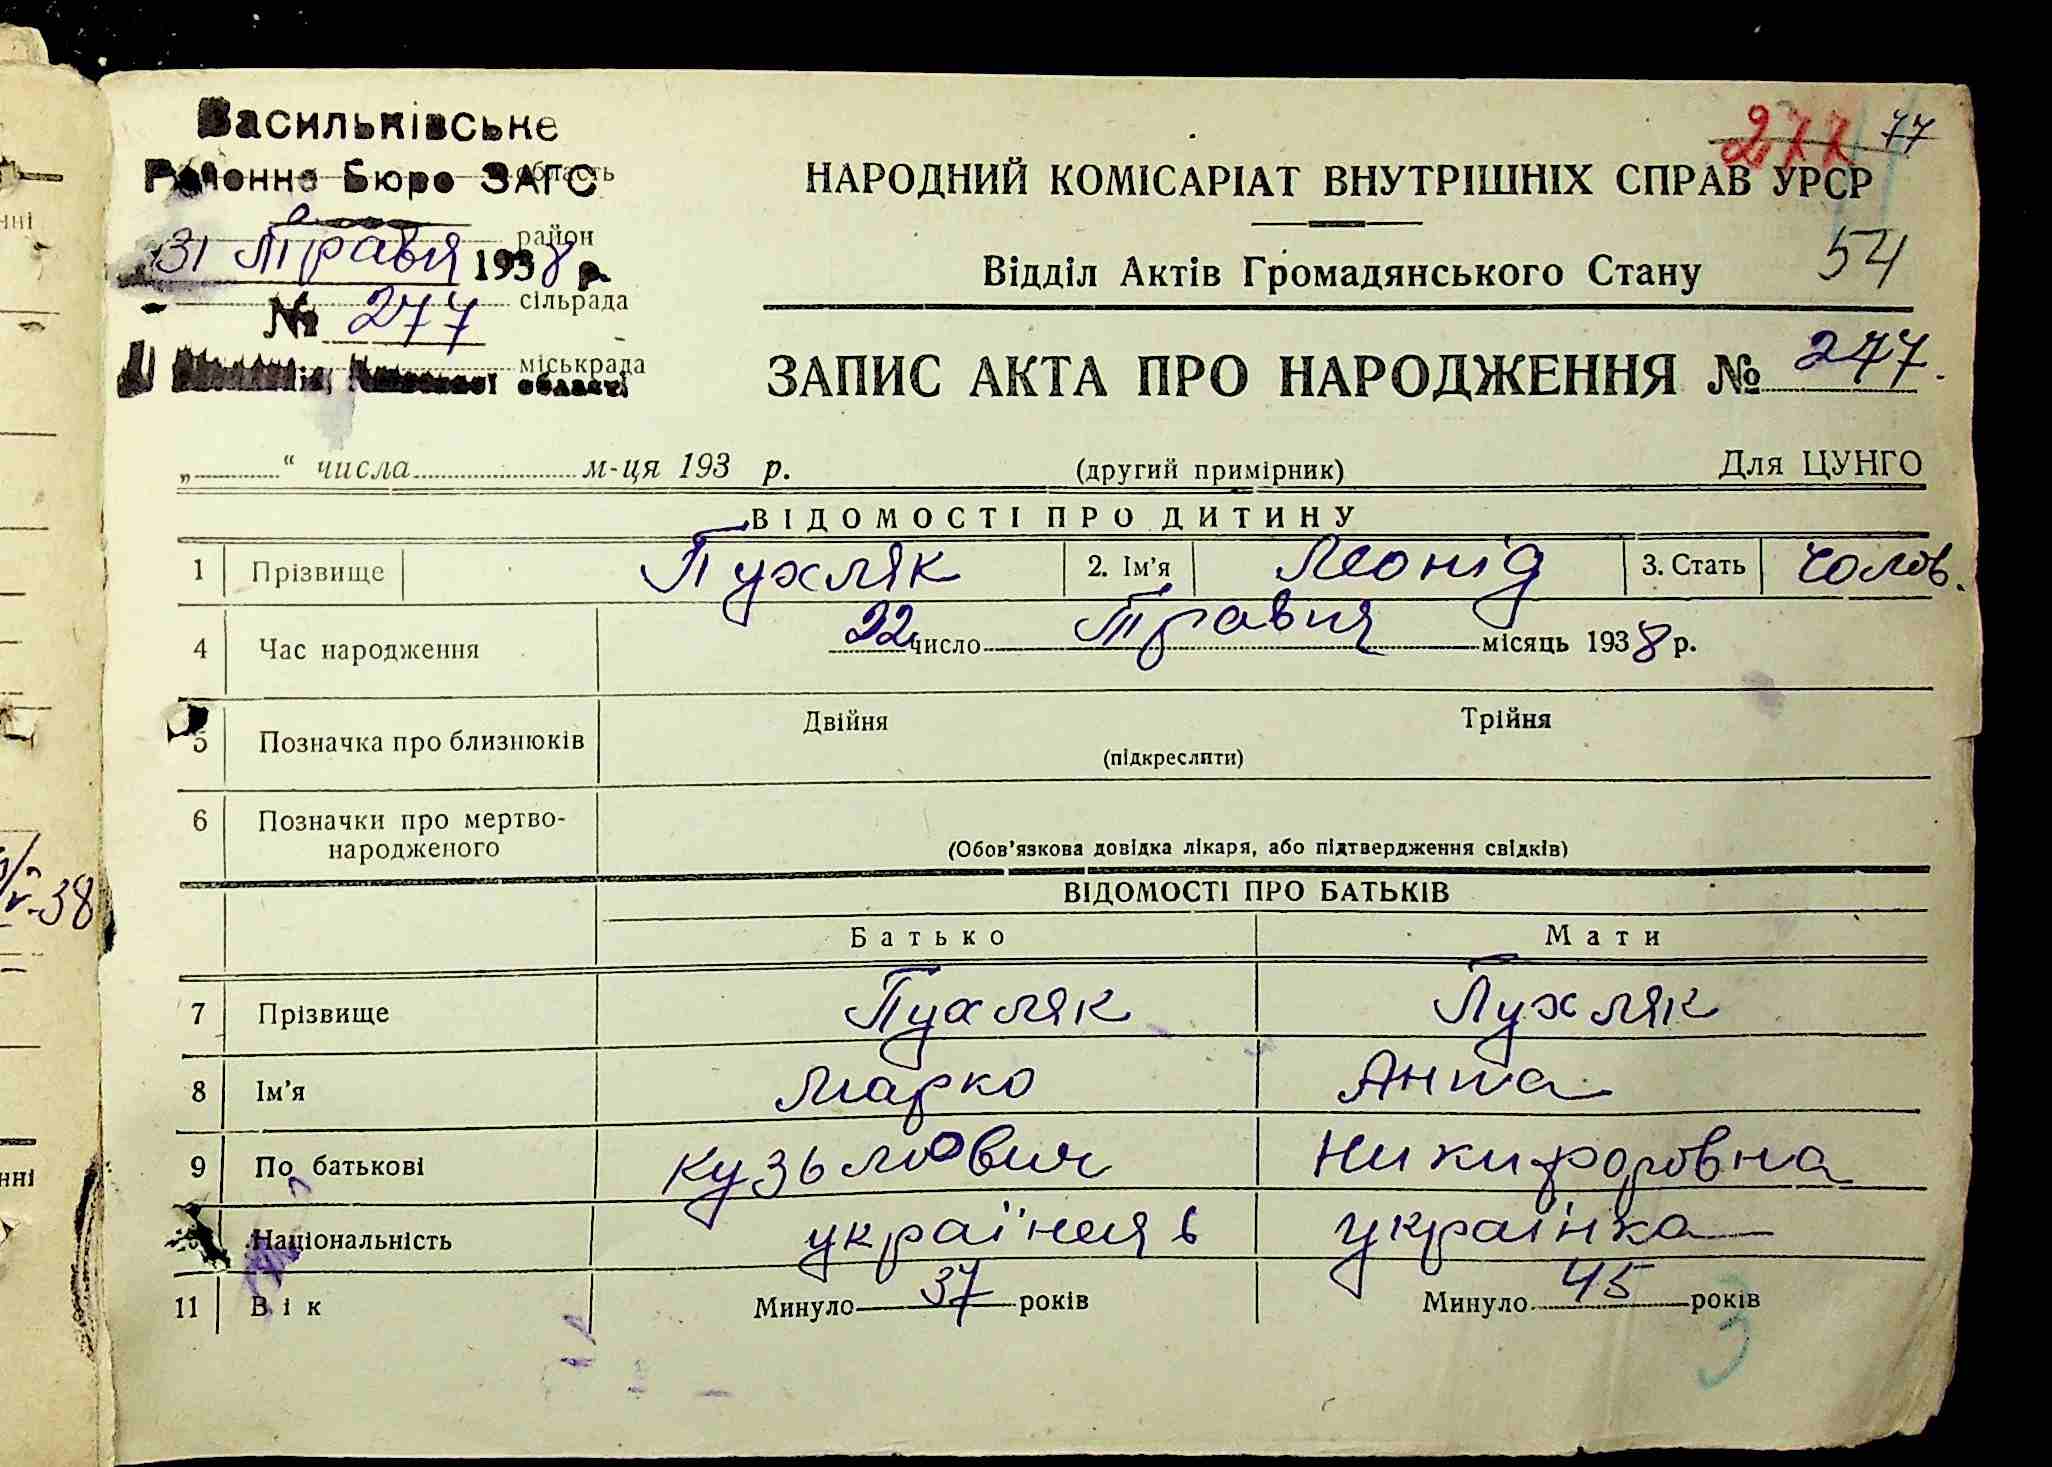 Васильківське
Районне Бюро ЗАГС
область
31 Травня 1938 р.
район
№ 277
сільрада
міськрада
області
277 77
НАРОДНИЙ КОМІСАРІАТ ВНУТРІШНІХ СПРАВ УРСР
Відділ Актів Громадянського Стану
54
ЗАПИС АКТА ПРО НАРОДЖЕННЯ № 277.
„ “ числа м-ця 193 р.
(другий примірник)
Для ЦУНГО
ВІДОМОСТІ ПРО ДИТИНУ
1 Прізвище Пухляк 2. Ім'я Леонід 3. Стать чолов.
4 Час народження 22 число Травня місяць 1938 р.
5 Позначка про близнюків Двійня Трійня
(підкреслити)
6 Позначки про мертво-
народженого
(Обов'язкова довідка лікаря, або підтвердження свідків)
ВІДОМОСТІ ПРО БАТЬКІВ
Батько Мати
7 Прізвище Пухляк Пухляк
8 Ім'я Марко Анна
9 По батькові Кузьмович Никифоровна
Національність українец українка
11 Вік Минуло 37 років Минуло 45 років
3
38